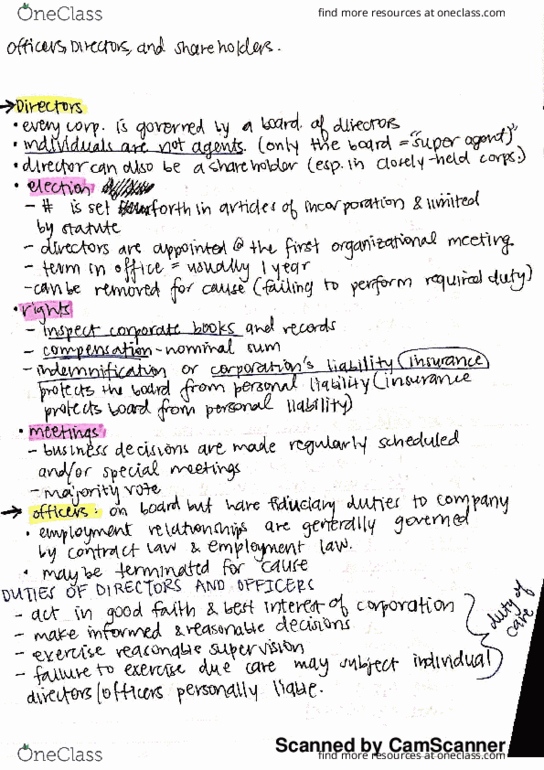 OneClass
find more resources at oneclass.com
officers, Directors, and shareholders.
→Directors
• every corp. is governed by a board of directors
• individuals are not agents. (only the board = "super agent")
• director can also be a shareholder (esp. in closely-held corps.)
• election
- # is set forth in articles of incorporation & limited
by statute
- directors are appointed @ the first organizational meeting.
- term in office = usually 1 year
- can be removed for cause (failing to perform required duty)
• rights
- inspect corporate books and records
- compensation - nominal sum
- indemnification or corporation's liability (insurance)
protects the board from personal liability (insurance
protects board from personal liability)
• meetings:
- business decisions are made regularly scheduled
and/or special meetings
- majority vote
→ officers: on board but have fiduciary duties to company
• employment relationships are generally governed
by contract law & employment law.
• may be terminated for cause
DUTIES OF DIRECTORS AND OFFICERS
- act in good faith & best interest of corporation
- make informed & reasonable decisions
- exercise reasonable supervision
- failure to exercise due care may subject individual
directors/officers personally liable.
duty of
care
Scanned by CamScanner
OneClass
find more resources at oneclass.com